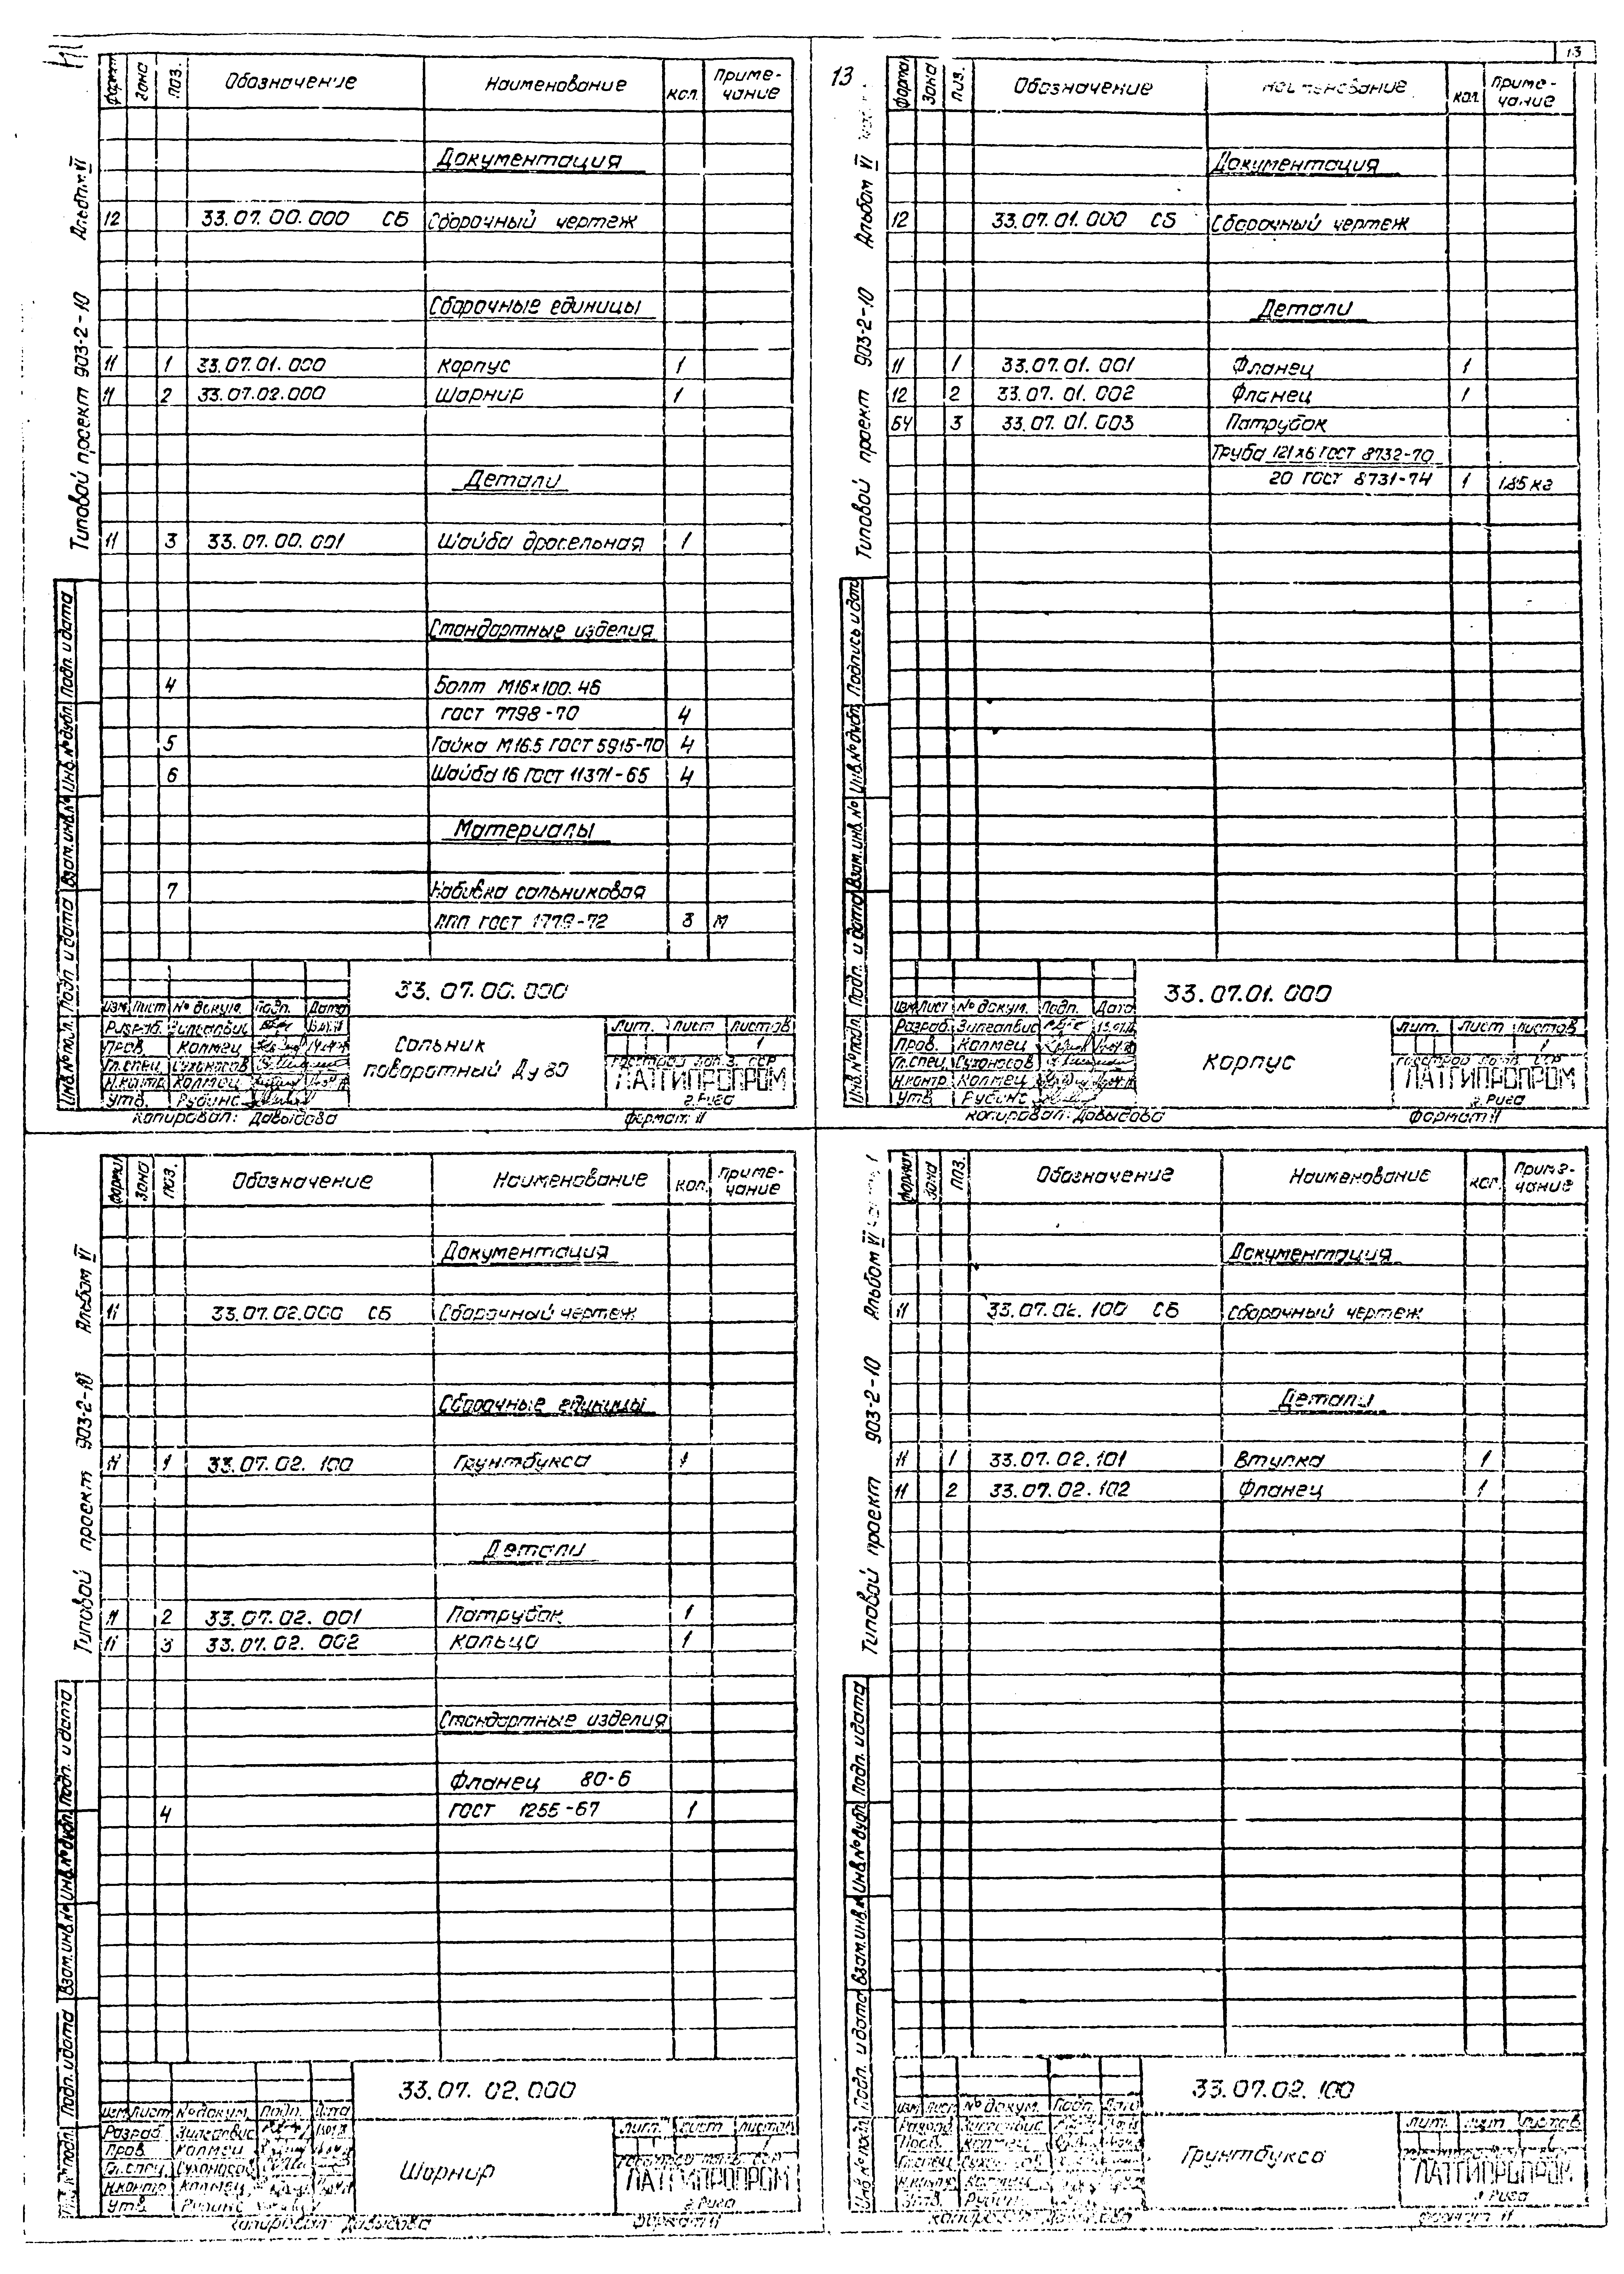 13
Формат Зона Поз. Обозначение Наименование Кол. Приме-
чание
Типовой проект 903-2-10 Альбом VI
Документация
12 33.07.00.000 СБ Сборочный чертеж
Сборочные единицы
11 1 33.07.01.000 Корпус 1
11 2 33.07.02.000 Шарнир 1
Детали
11 3 33.07.00.001 Шайба дросельная 1
Стандартные изделия
4 Болт М16×100.46
ГОСТ 7798-70 4
5 Гайка М16.5 ГОСТ 5915-70 4
6 Шайба 16 ГОСТ 11371-65 4
Материалы
7 Набивка сальниковая
ГОСТ 1779-72 3 м
Инв.№ подл. Подп. и дата Взам.инв.№ Инв.№ дубл. Подп. и дата
33.07.00.000
Изм. Лист № докум. Подп. Дата
Разраб. Зилгалвис
Пров. Калмец
Гл.спец. Сухоносов
Н.контр. Калмец
Утв. Рубинс
Сальник
поворотный Ду 80
Лит. Лист Листов
1
ЛАТГИПРОПРОМ
г.Рига
Копировал: Давыдова Формат 11
13
Формат Зона Поз. Обозначение Наименование Кол. Приме-
чание
Типовой проект 903-2-10 Альбом VI
Документация
12 33.07.01.000 СБ Сборочный чертеж
Детали
11 1 33.07.01.001 Фланец 1
12 2 33.07.01.002 Фланец 1
БЧ 3 33.07.01.003 Патрубок
Труба 121×6 ГОСТ 8732-70
20 ГОСТ 8731-74 1 1.85 кг
Инв.№ подл. Подп. и дата Взам.инв.№ Инв.№ дубл. Подпись и дата
33.07.01.000
Изм. Лист № докум. Подп. Дата
Разраб. Зилгалвис
Пров. Калмец
Гл.спец. Сухоносов
Н.контр. Калмец
Утв. Рубинс
Корпус
Лит. Лист Листов
1
ЛАТГИПРОПРОМ
г.Рига
Копировал: Давыдова Формат 11
Формат Зона Поз. Обозначение Наименование Кол. Приме-
чание
Типовой проект 903-2-10 Альбом VI
Документация
11 33.07.02.000 СБ Сборочный чертеж
Сборочные единицы
11 1 33.07.02.100 Грунтбукса 1
Детали
11 2 33.07.02.001 Патрубок 1
11 3 33.07.02.002 Кольцо 1
Стандартные изделия
Фланец 80-6
4 ГОСТ 1255-67 1
Инв.№ подл. Подп. и дата Взам.инв.№ Инв.№ дубл. Подп. и дата
33.07.02.000
Изм. Лист № докум. Подп. Дата
Разраб. Зилгалвис
Пров. Калмец
Гл.спец. Сухоносов
Н.контр. Калмец
Утв. Рубинс
Шарнир
Лит. Лист Листов
ЛАТГИПРОПРОМ
г.Рига
Копировал Давыдова Формат 11
Формат Зона Поз. Обозначение Наименование Кол. Приме-
чание
Типовой проект 903-2-10 Альбом VI
Документация
11 33.07.02.100 СБ Сборочный чертеж
Детали
11 1 33.07.02.101 Втулка 1
11 2 33.07.02.102 Фланец 1
Инв.№ подл. Подп. и дата Взам.инв.№ Инв.№ дубл. Подп. и дата
33.07.02.100
Изм. Лист № докум. Подп. Дата
Разраб. Зилгалвис
Пров. Калмец
Гл.спец.
Н.контр. Калмец
Утв. Рубинс
Грунтбукса
Лит. Лист Листов
ЛАТГИПРОПРОМ
г.Рига
Формат 11